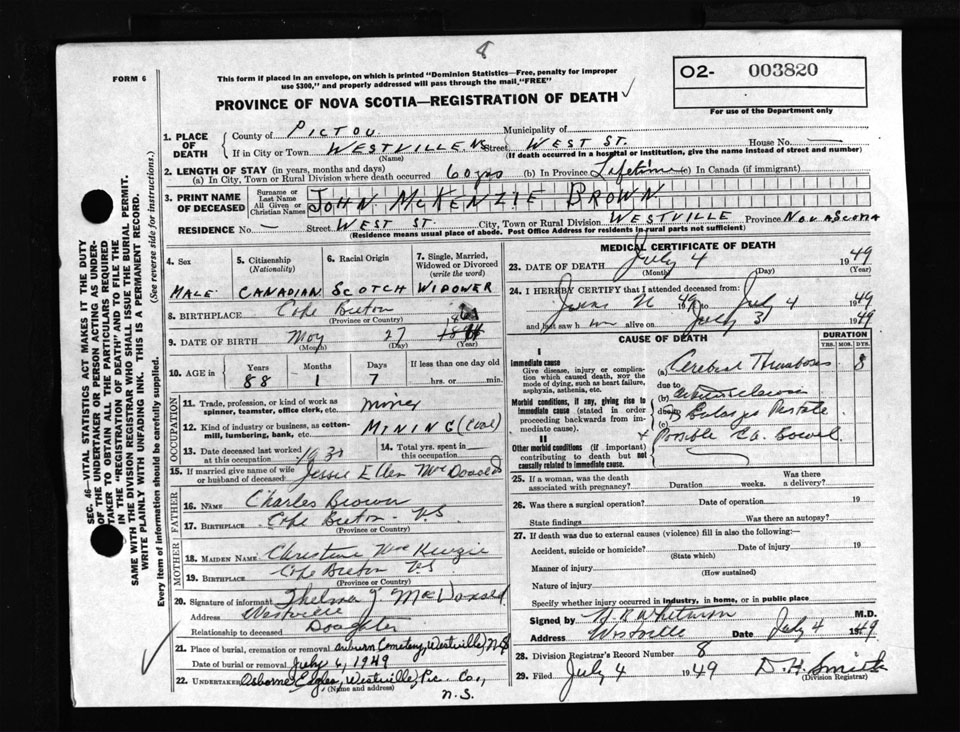 8
FORM 6
This form if placed in an envelope, on which is printed "Dominion Statistics—Free, penalty for improper
use $300," and properly addressed will pass through the mail, "FREE"
O2- 003820
For use of the Department only
PROVINCE OF NOVA SCOTIA—REGISTRATION OF DEATH ✓
1. PLACE OF DEATH
County of PICTOU Municipality of
If in City or Town WESTVILLE N.S. Street WEST ST. House No. —
(Name) (If death occurred in a hospital or institution, give the name instead of street and number)
2. LENGTH OF STAY (in years, months and days)
(a) In City, Town or Rural Division where death occurred 60 yrs (b) In Province Lifetime (c) In Canada (if immigrant)
3. PRINT NAME OF DECEASED
Surname or Last Name
All Given or Christian Names
JOHN MCKENZIE BROWN
RESIDENCE No. — Street WEST ST. City, Town or Rural Division WESTVILLE Province NOVA SCOTIA
(Residence means usual place of abode. Post Office Address for residents in rural parts not sufficient)
4. Sex
5. Citizenship (Nationality)
6. Racial Origin
7. Single, Married, Widowed or Divorced (write the word)
MALE CANADIAN SCOTCH WIDOWER
8. BIRTHPLACE Cape Breton
(Province or Country)
9. DATE OF BIRTH May 27
(Month) (Day) (Year)
10. AGE in
Years Months Days If less than one day old
88 1 7 hrs. or min.
OCCUPATION
11. Trade, profession, or kind of work as
spinner, teamster, office clerk, etc. miner
12. Kind of industry or business, as cotten-
mill, lumbering, bank, etc. MINING (Coal)
13. Date deceased last worked
at this occupation 1930
14. Total yrs. spent in
this occupation
15. If married give name of wife
or husband of deceased: Jessie Ellen MacDonald
FATHER
16. NAME Charles Brown
17. BIRTHPLACE Cape Breton N.S.
(Province or Country)
MOTHER
18. MAIDEN NAME Christine MacKenzie
19. BIRTHPLACE Cape Breton N.S.
(Province or Country)
20. Signature of informant Thelma J McDonald
Address Westville
Relationship to deceased Daughter
21. Place of burial, cremation or removal Auburn Cemetery, Westville, N.S.
Date of burial or removal July 6, 1949
22. UNDERTAKER Osborne Eagles, Westville, Pic. Co.,
(Name and address)
N.S.
MEDICAL CERTIFICATE OF DEATH
23. DATE OF DEATH July 4 1949
(Month) (Day) (Year)
24. I HEREBY CERTIFY that I attended deceased from:
49 to July 4 1949
and last saw h im alive on July 3 1949
CAUSE OF DEATH
DURATION
YRS. MOS. DYS.
I
Immediate cause
Give disease, injury or complica-
tion which caused death, not the
mode of dying, such as heart failure,
asphyxia, asthenia, etc.
(a) Cerebral Thrombosis 8
due to
Morbid conditions, if any, giving rise to
immediate cause (stated in order
proceeding backwards from im-
mediate cause).
(b) Arteriosclerosis
(c)
II
Other morbid conditions (if important)
contributing to death but not
causally related to immediate cause.
Possible Ca. Bowel
25. If a woman, was the death
associated with pregnancy? Duration weeks. Was there a delivery?
26. Was there a surgical operation? Date of operation 19
State findings Was there an autopsy?
27. If death was due to external causes (violence) fill in also the following:
Accident, suicide or homicide? Date of injury 19
(State which)
Manner of injury
(How sustained)
Nature of injury
Specify whether injury occurred in industry, in home, or in public place
Signed by M.D.
Address Westville Date July 4 1949
28. Division Registrar's Record Number 8
29. Filed July 4 1949 D. H. Smith
(Division Registrar)
SEC. 46—VITAL STATISTICS ACT MAKES IT THE DUTY
OF THE UNDERTAKER OR PERSON ACTING AS UNDER-
TAKER TO OBTAIN ALL THE PARTICULARS REQUIRED
IN THE "REGISTRATION OF DEATH" AND TO FILE THE
SAME WITH THE DIVISION REGISTRAR WHO SHALL ISSUE THE BURIAL PERMIT.
WRITE PLAINLY WITH UNFADING INK. THIS IS A PERMANENT RECORD.
Every item of information should be carefully supplied. (See reverse side for instructions.)